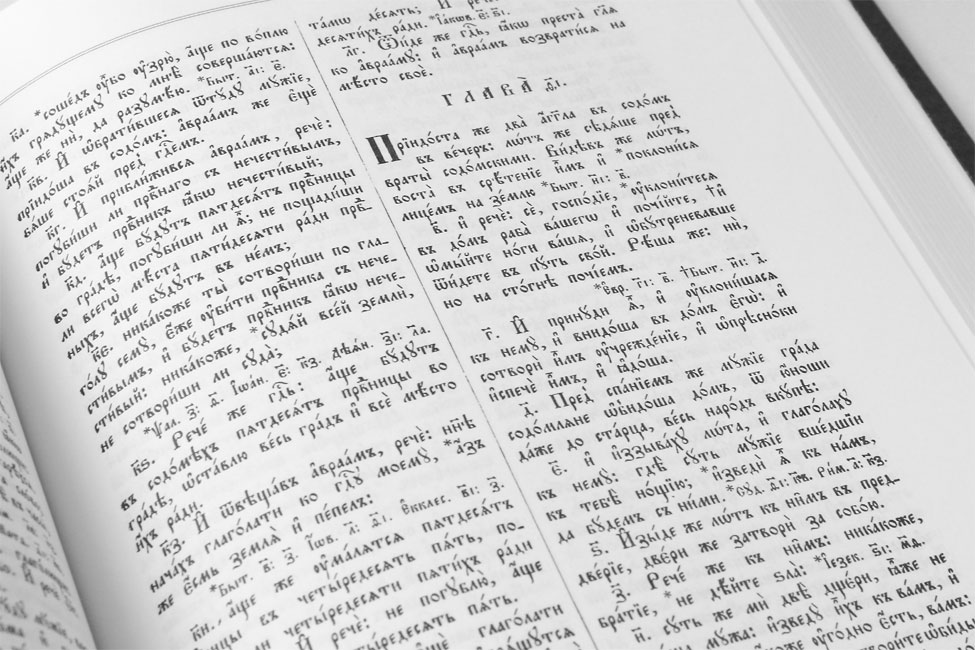 к҃а. *сошедъ ᲂу҆̀бо ᲂу҆́зрю, а҆́ще по во́плю
и҆́хъ грѧдꙋ́щемꙋ ко мнѣ̀ соверша́ютсѧ:
а҆́ще же нѝ, да разꙋмѣ́ю. *Быт. а҃і: є҃.
к҃в. И҆ ѡ҆брати́вшесѧ ѿтꙋ́дꙋ мꙋ́жїе,
прїидо́ша въ содо́мъ: а҆враа́мъ же є҆щѐ
бѧ́ше стоѧ́й пред̾ гдⷭ҇емъ.
к҃г. И҆ прибли́живсѧ а҆враа́мъ, речѐ:
погꙋби́ши ли пра́внаго съ нечести́вымъ,
и҆ бꙋ́детъ првⷣникъ ꙗ҆́кѡ нечести́вый;
к҃д. а҆́ще бꙋ́дꙋтъ пѧтьдесѧ́тъ првⷣницы
во гра́дѣ, погꙋби́ши ли ѧ҆̀; не пощади́ши
ли всегѡ̀ мѣ́ста пѧти́десѧти ра́ди првⷣ-
ныхъ, а҆́ще бꙋ́дꙋтъ въ не́мъ;
к҃є. ника́коже ты̀ сотвори́ши по гла-
го́лꙋ семꙋ̀, є҆́же ᲂу҆би́ти првⷣника съ нече-
сти́вымъ, и҆ бꙋ́детъ првⷣникъ ꙗ҆́кѡ нече-
сти́вый: ника́коже, *сꙋдѧ́й все́й землѝ,
не сотвори́ши ли сꙋда̀;
*Ѱал. з҃: д҃і. І҆ѡа́н. є҃: к҃з. Дѣѧ́н. з҃і: л҃а.
к҃ѕ. Рече́ же гдⷭ҇ь: а҆́ще бꙋ́дꙋтъ
въ содо́мѣхъ пѧтьдесѧ́тъ првⷣницы во
гра́дѣ, ѡ҆ста́влю ве́сь гра́дъ и҆ всѐ мѣ́сто
и҆́хъ ра́ди.
к҃з. И҆ ѿвѣща́въ а҆враа́мъ, речѐ: нн҃ѣ
нача́хъ глаго́лати ко гдⷭ҇ꙋ моемꙋ̀, *а҆́зъ
же є҆́смь землѧ̀ и҆ пе́пелъ:
*Быт. в҃: з҃. І҆́ѡв. л҃: ѳ҃і. Е҆кклес. і҃і: з҃.
к҃и. а҆́ще же ᲂу҆ма́лѧтсѧ пѧтьдесѧ́тъ
въ четы́редесѧть пѧ́ть, по-
четы́редесѧти пѧти́хъ ра́ди
И҆ речѐ: не погꙋблю̀, а҆́ще
четы́редесѧть пѧ́ть.
глаго́лати
та́мѡ де́сѧть;
десѧти́хъ ра́ди. *І҆а́кѡв. є҃: ѕ҃і.
л҃г. Ѿи́де же гдⷭ҇ь, ꙗ҆́кѡ преста̀ гл҃ѧ
ко а҆враа́мꙋ: и҆ а҆враа́мъ возврати́сѧ на
мѣ́сто своѐ.
ГЛАВА̀ Ѳ҃І.
Прїидо́ста же два̀ а҆́гг҃ла въ содо́мъ
въ ве́черъ: лѡ́тъ же сѣдѧ́ше пред̾
враты̀ содо́мскими. Ви́дѣвъ же лѡ́тъ,
воста̀ въ срѣ́тенїе и҆̀мъ и҆ *поклони́сѧ
лице́мъ на зе́млю *Быт. и҃і: в҃.
в҃. и҆ речѐ: сѐ, господі́е, *ᲂу҆клони́тесѧ
въ до́мъ раба̀ ва́шегѡ и҆ почі́йте, †и҆
ѡ҆мы́йте но́ги ва́ша, и҆ ѡ҆бꙋ́треневавше
ѿи́дете въ пꙋ́ть сво́й. Рѣ́ша же: нѝ,
но на сто́гнѣ почі́емъ.
*Е҆вр. г҃і: в҃. †Быт. и҃і: д҃.
г҃. И҆ принꙋ́ди ѧ҆̀, и҆ ᲂу҆клони́шасѧ
къ немꙋ̀, и҆ внидо́ша въ до́мъ є҆гѡ̀: и҆
сотворѝ и҆̀мъ ᲂу҆чрежде́нїе, и҆ ѡ҆прѣсно́ки
и҆спечѐ и҆̀мъ, и҆ ꙗ҆до́ша.
д҃. Пред̾ спа́нїемъ же мꙋ́жїе гра́да
содо́млѧне ѡ҆быдо́ша до́мъ, ѿ ю҆́ноши
да́же до ста́рца, ве́сь наро́дъ вкꙋ́пѣ:
є҃. и҆ и҆ззыва́хꙋ лѡ́та, и҆ глаго́лахꙋ
къ немꙋ̀: гдѣ̀ сꙋ́ть мꙋ́жїе вше́дшїи
къ тебѣ̀ но́щїю; *и҆зведѝ ѧ҆̀ къ на́мъ,
да бꙋ́демъ съ ни́ми.
ѕ҃. И҆зы́де же лѡ́тъ къ ни̑мъ въ пред-
две́рїе, две́ри же затворѝ за собо́ю.
з҃. Рече́ же къ ни̑мъ: ника́коже,
бра́тїе, *не дѣ́йте ѕла̀: *І҆езек. ѕ҃і: м҃д.
и҃. сꙋ́ть же мѝ двѣ̀ дще́ри, ꙗ҆̀же не
мꙋ́жа: и҆зведꙋ̀ и҆̀хъ къ ва́мъ, и҆
ᲂу҆го́дно є҆́сть, ва́мъ: